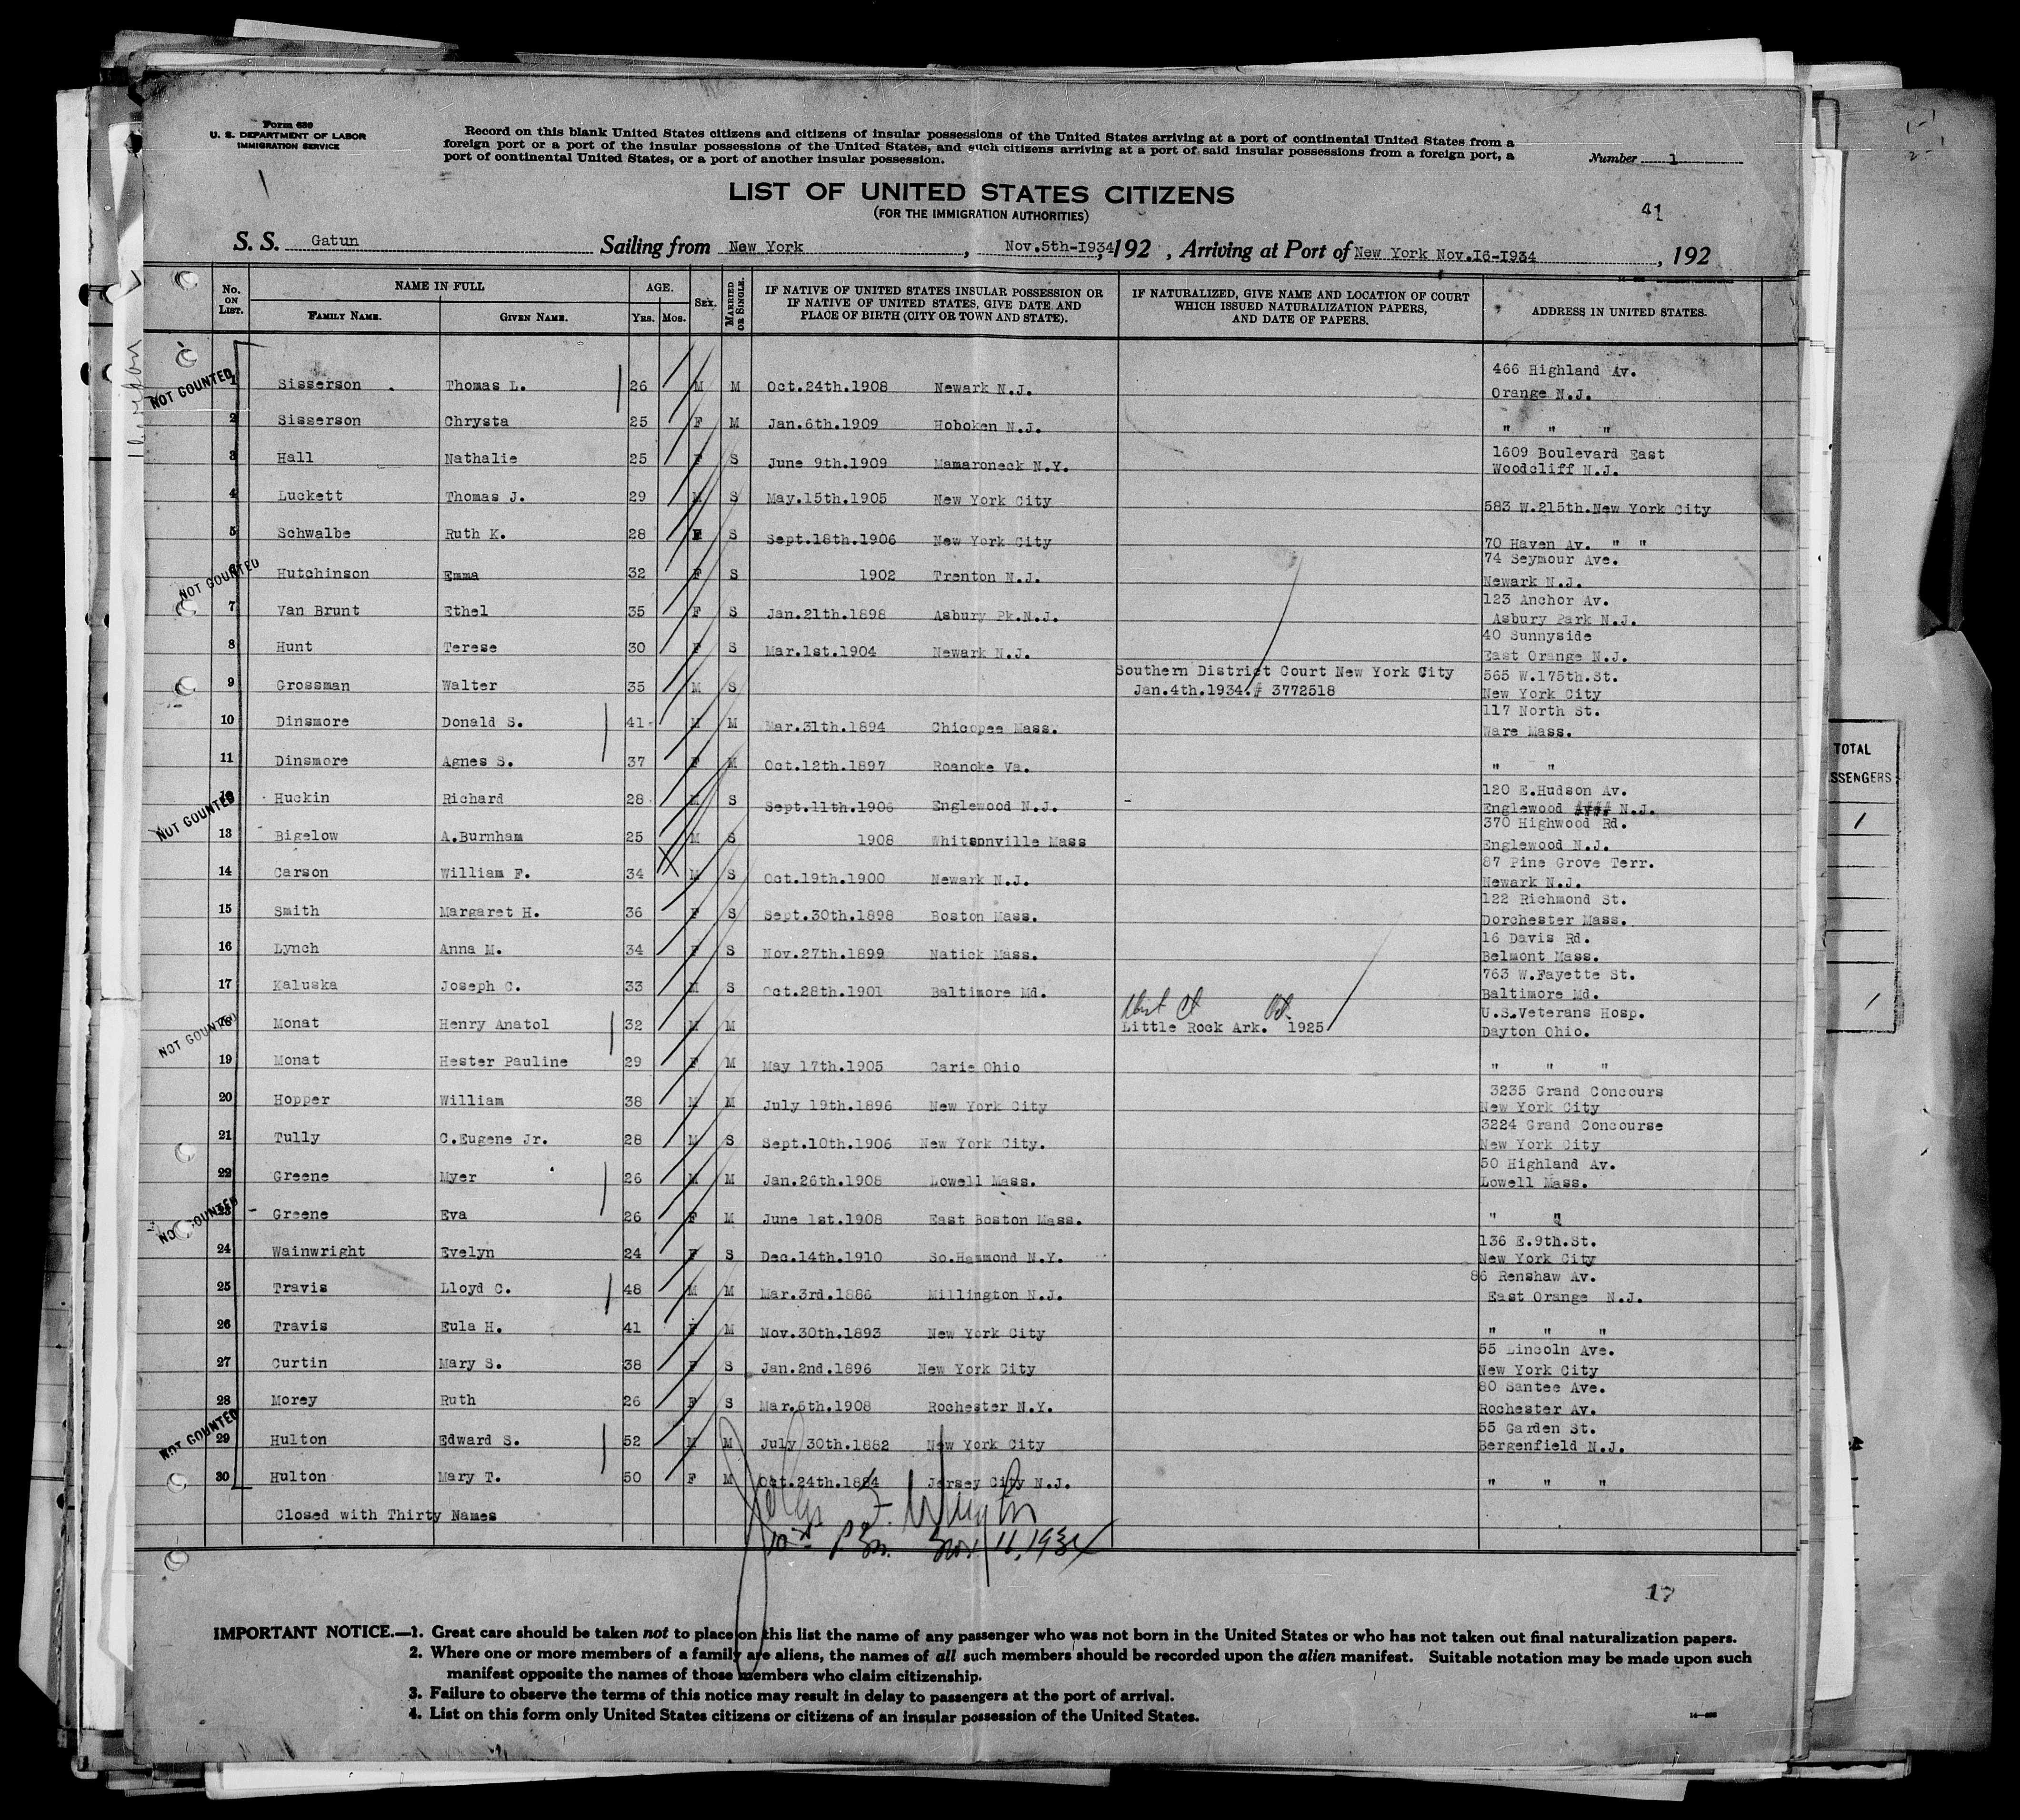 Form 630
U. S. DEPARTMENT OF LABOR
IMMIGRATION SERVICE
Record on this blank United States citizens and citizens of insular possessions of the United States arriving at a port of continental United States from a
foreign port or a port of the insular possessions of the United States, and such citizens arriving at a port of said insular possessions from a foreign port, a
port of continental United States, or a port of another insular possession.
Number 1
LIST OF UNITED STATES CITIZENS
(FOR THE IMMIGRATION AUTHORITIES)
41
S. S. Gatun Sailing from New York, Nov.5th-I934, 192 , Arriving at Port of New York Nov.I6-I934, 192
No. ON LIST. NAME IN FULL FAMILY NAME. GIVEN NAME. AGE. YRS. MOS. SEX. MARRIED OR SINGLE. IF NATIVE OF UNITED STATES INSULAR POSSESSION OR IF NATIVE OF UNITED STATES, GIVE DATE AND PLACE OF BIRTH (CITY OR TOWN AND STATE). IF NATURALIZED, GIVE NAME AND LOCATION OF COURT WHICH ISSUED NATURALIZATION PAPERS, AND DATE OF PAPERS. ADDRESS IN UNITED STATES.
NOT COUNTED
1 Sisserson Thomas L. 26 M M Oct.24th.1908 Newark N.J. 466 Highland Av. Orange N.J.
2 Sisserson Chrysta 25 F M Jan.6th.1909 Hoboken N.J. " " "
3 Hall Nathalie 25 F S June 9th.1909 Mamaroneck N.Y. 1609 Boulevard East Woodcliff N.J.
4 Luckett Thomas J. 29 M S May.15th.1905 New York City 583 W.215th.New York City
5 Schwalbe Ruth K. 28 F S Sept.18th.1906 New York City 70 Haven Av. " "
NOT COUNTED
6 Hutchinson Emma 32 F S 1902 Trenton N.J. 74 Seymour Ave. Newark N.J.
7 Van Brunt Ethel 35 F S Jan.21th.1898 Asbury Pk.N.J. 123 Anchor Av. Asbury Park N.J.
8 Hunt Terese 30 F S Mar.1st.1904 Newark N.J. 40 Sunnyside East Orange N.J.
9 Grossman Walter 35 M S Southern District Court New York City Jan.4th.1934.# 3772518 565 W.175th.St. New York City
10 Dinsmore Donald S. 41 M M Mar.31th.1894 Chicopee Mass. 117 North St. Ware Mass.
11 Dinsmore Agnes S. 37 F M Oct.12th.1897 Roanoke Va. " "
NOT COUNTED
12 Huckin Richard 28 M S Sept.11th.1906 Englewood N.J. 120 E.Hudson Av. Englewood N.J.
13 Bigelow A.Burnham 25 M S 1908 Whitsonville Mass 370 Highwood Rd. Englewood N.J.
14 Carson William F. 34 X M S Oct.19th.1900 Newark N.J. 87 Pine Grove Terr. Newark N.J.
15 Smith Margaret H. 36 F S Sept.30th.1898 Boston Mass. 122 Richmond St. Dorchester Mass.
16 Lynch Anna M. 34 F S Nov.27th.1899 Natick Mass. 16 Davis Rd. Belmont Mass.
17 Kaluska Joseph C. 33 M S Oct.28th.1901 Baltimore Md. 763 W.Fayette St. Baltimore Md.
NOT COUNTED
18 Monat Henry Anatol 32 M M Dist Ct Little Rock Ark. Oct. 1925 U.S.Veterans Hosp. Dayton Ohio.
19 Monat Hester Pauline 29 F M May 17th.1905 Carie Ohio " " "
20 Hopper William 38 M M July 19th.1896 New York City 3235 Grand Concours New York City
21 Tully C.Eugene Jr. 28 M S Sept.10th.1906 New York City. 3224 Grand Concourse New York City
22 Greene Myer 26 M M Jan.26th.1908 Lowell Mass. 50 Highland Av. Lowell Mass.
NOT COUNTED
23 Greene Eva 26 F M June 1st.1908 East Boston Mass. " "
24 Wainwright Evelyn 24 F S Dec.14th.1910 So.Hammond N.Y. 136 E.9th.St. New York City
25 Travis Lloyd C. 48 M M Mar.3rd.1886 Millington N.J. 86 Renshaw Av. East Orange N.J.
26 Travis Eula H. 41 F M Nov.30th.1893 New York City " " "
27 Curtin Mary S. 38 F S Jan.2nd.1896 New York City 55 Lincoln Ave. New York City
28 Morey Ruth 26 F S Mar.6th.1908 Rochester N.Y. 80 Santee Ave. Rochester Av.
NOT COUNTED
29 Hulton Edward S. 52 M M July 30th.1882 New York City 55 Garden St. Bergenfield N.J.
30 Hulton Mary T. 50 F M Oct.24th.1884 Jersey City N.J. " " "
Closed with Thirty Names
Nov. 16, 1934
17
IMPORTANT NOTICE.—1. Great care should be taken not to place on this list the name of any passenger who was not born in the United States or who has not taken out final naturalization papers.
2. Where one or more members of a family are aliens, the names of all such members should be recorded upon the alien manifest. Suitable notation may be made upon such
manifest opposite the names of those members who claim citizenship.
3. Failure to observe the terms of this notice may result in delay to passengers at the port of arrival.
4. List on this form only United States citizens or citizens of an insular possession of the United States.
TOTAL
SSENGERS